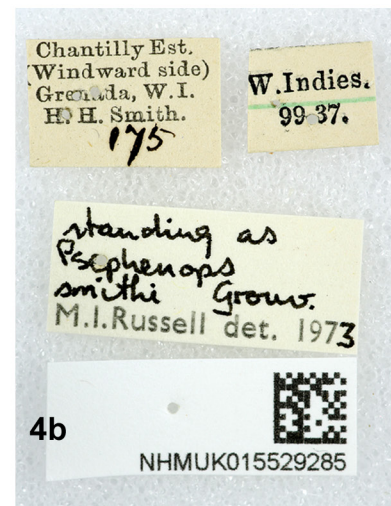 Chantilly Est.
(Windward side)
Grenada, W.I.
H. H. Smith.
175
W. Indies.
99-37.
standing as
Psephenops
smithi Grouv.
M.I.Russell det. 1973
4b
NHMUK015529285